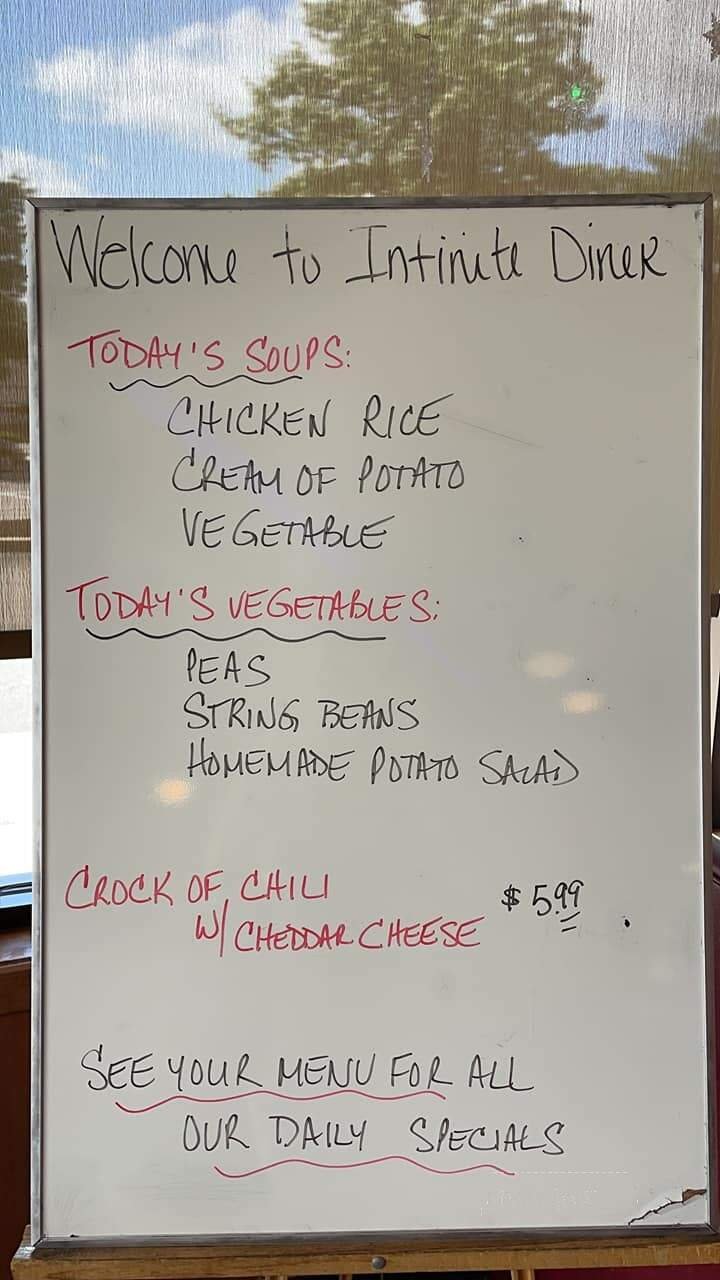 Welcome to Infinite Diner
TODAY'S SOUPS:
CHICKEN RICE
CREAM OF POTATO
VEGETABLE
TODAY'S VEGETABLES:
PEAS
STRING BEANS
HOMEMADE POTATO SALAD
CROCK OF CHILI $5.99
W/ CHEDDAR CHEESE
SEE YOUR MENU FOR ALL
OUR DAILY SPECIALS